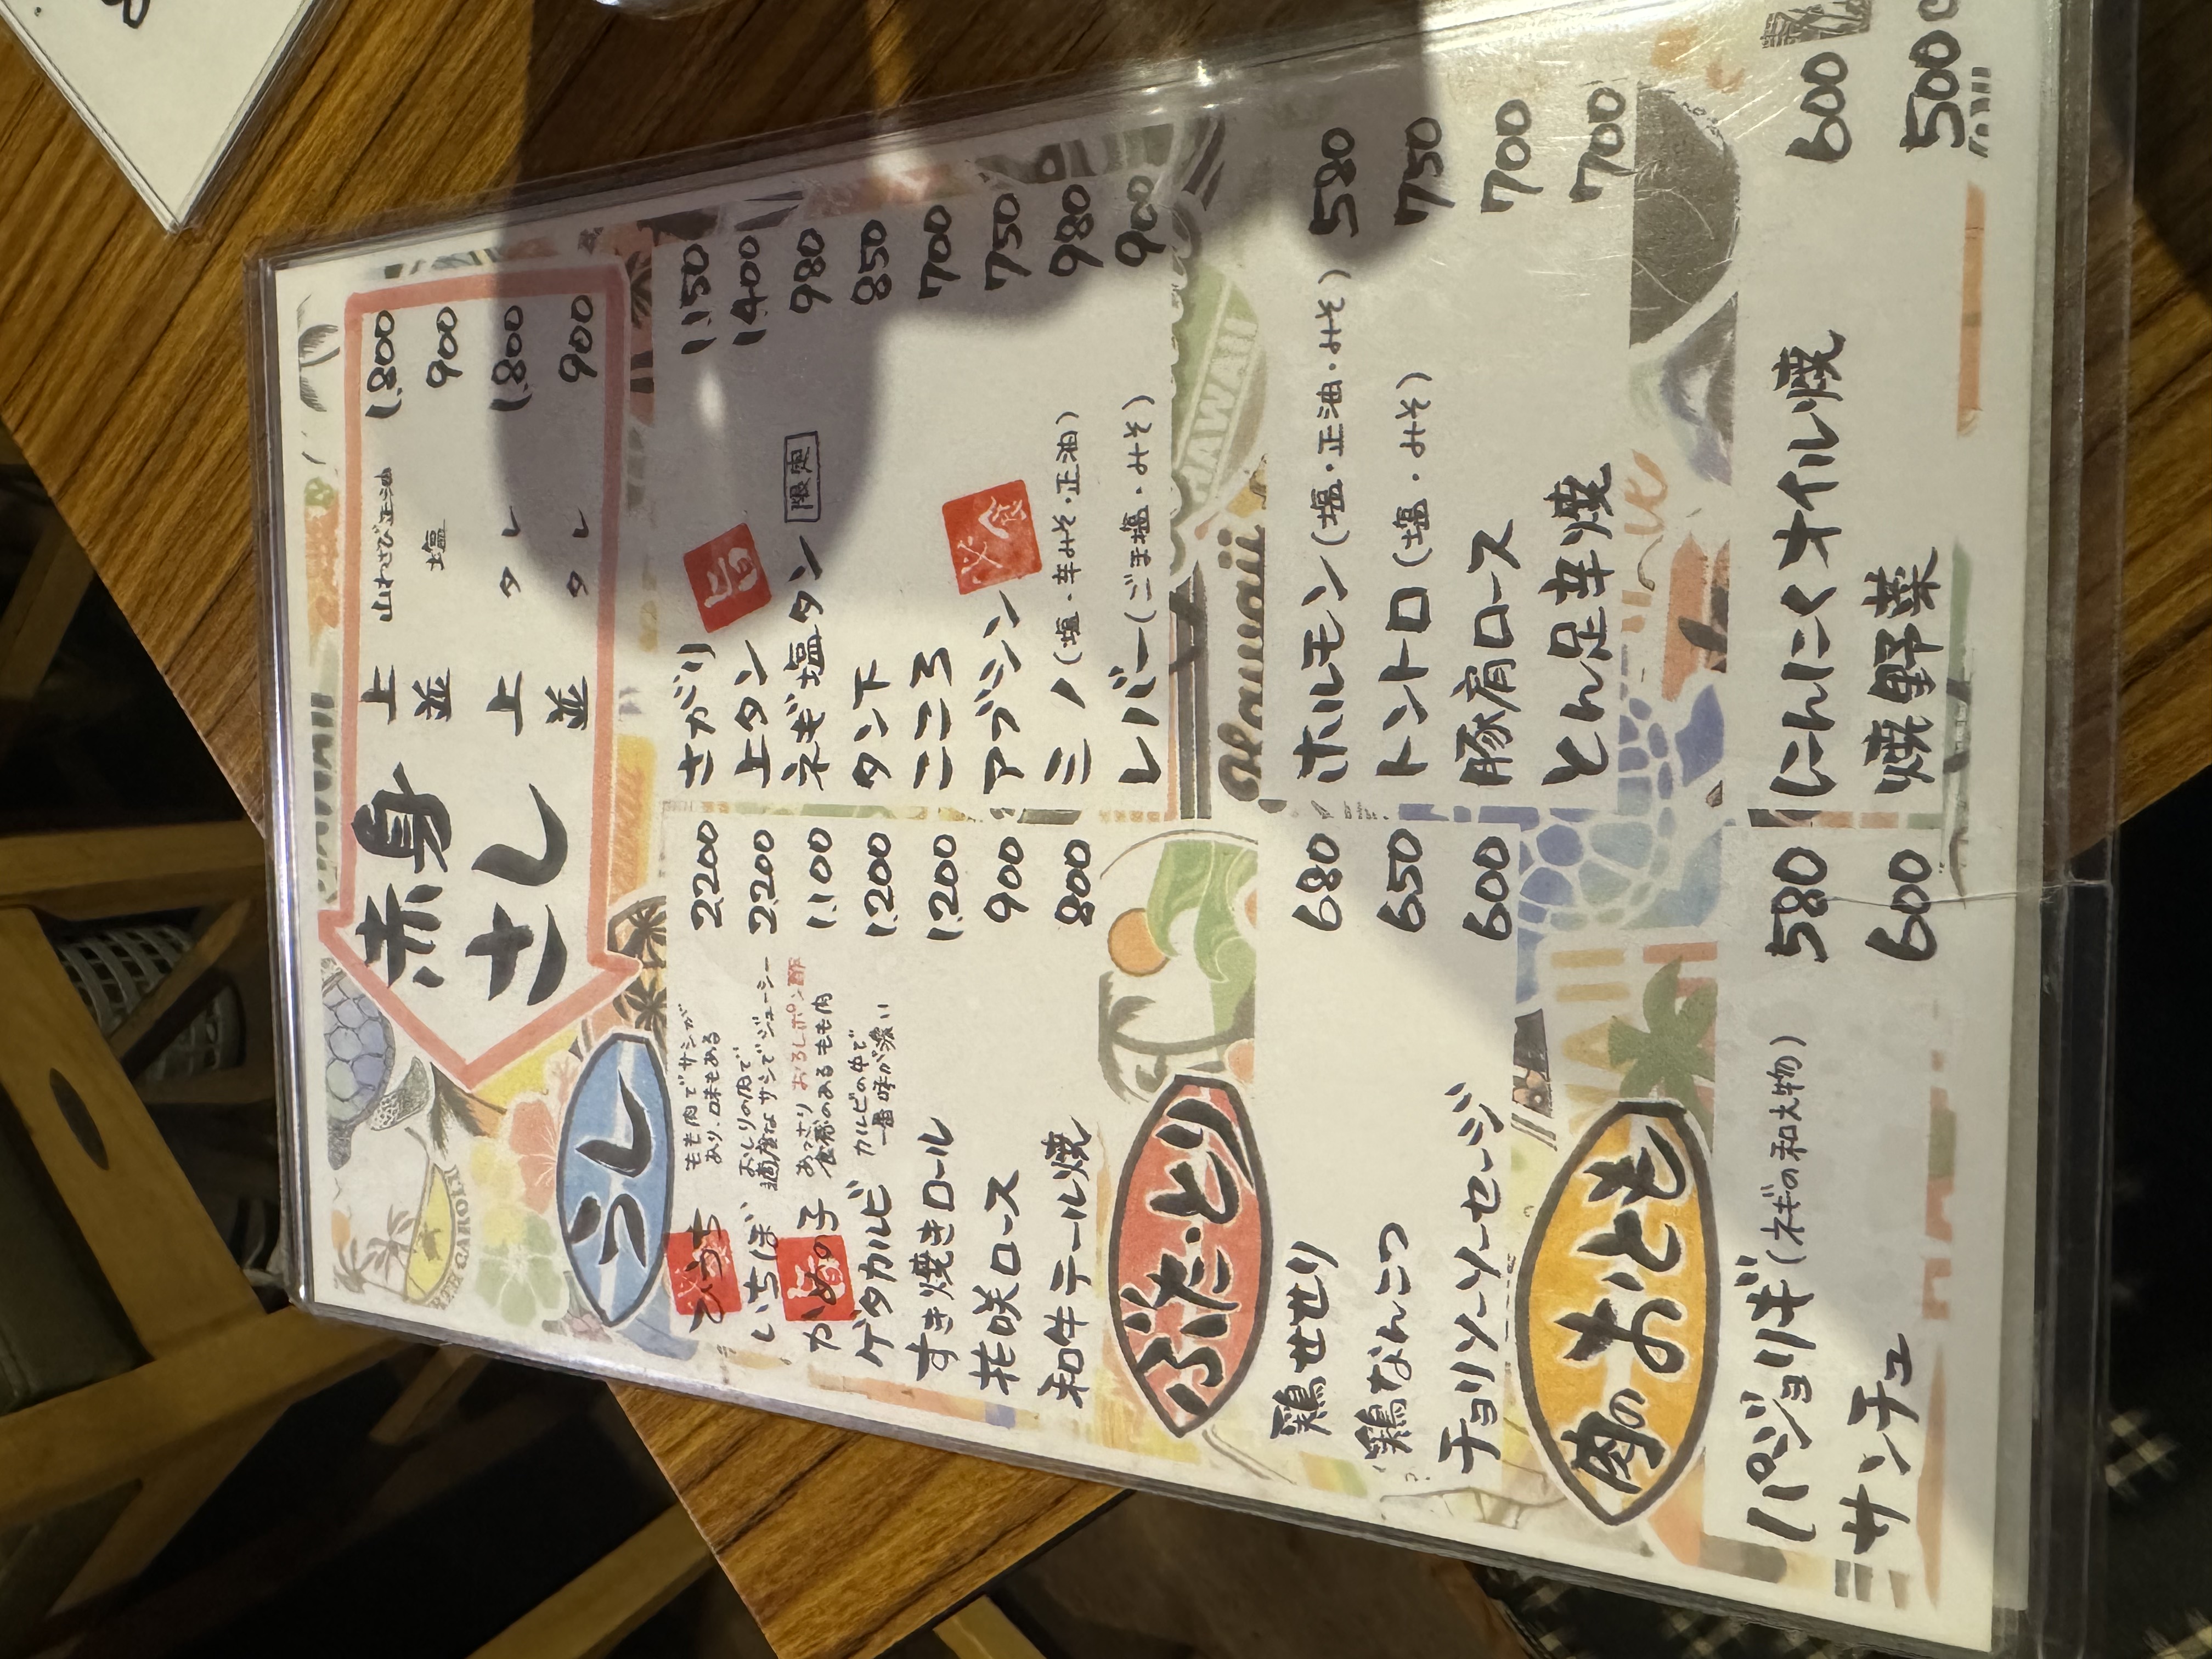 HAWAII
RTH CAROLI
赤身 上 山わさび正油 1.800
並 塩 900
さし 上 タレ 1.800
並 タレ 900
うし
ひうち もも肉でサシが
あり、味もある 2.200
いちぼ おしりの肉で
適度なサシでジューシー 2.200
かめの子 あっさり おろしポン酢
食感のあるもも肉 1.100
ゲタカルビ カルビの中で
一番味が濃い 1.200
すき焼きロール 1.200
花咲ロース 900
和牛テール焼 800
さがり 1.150
旨
上タン 1.400
ネギ塩タン 限定 980
タン下 850
こころ 700
アブシン 必食 750
ミノ(塩・辛みそ・正油) 980
レバー(ごま塩・みそ) 900
ぶた・とり
鶏せせり 680
鶏なんこつ 650
チョリソーソーセージ 600
Hawaii
HAWAII
ホルモン(塩・正油・みそ) 580
トントロ(塩・みそ) 750
豚肩ロース 700
とん足辛焼 700
肉のおとも
パジョリギ(ネギの和え物) 580
サンチュ 600
にんにくオイル焼 600
焼野菜 500